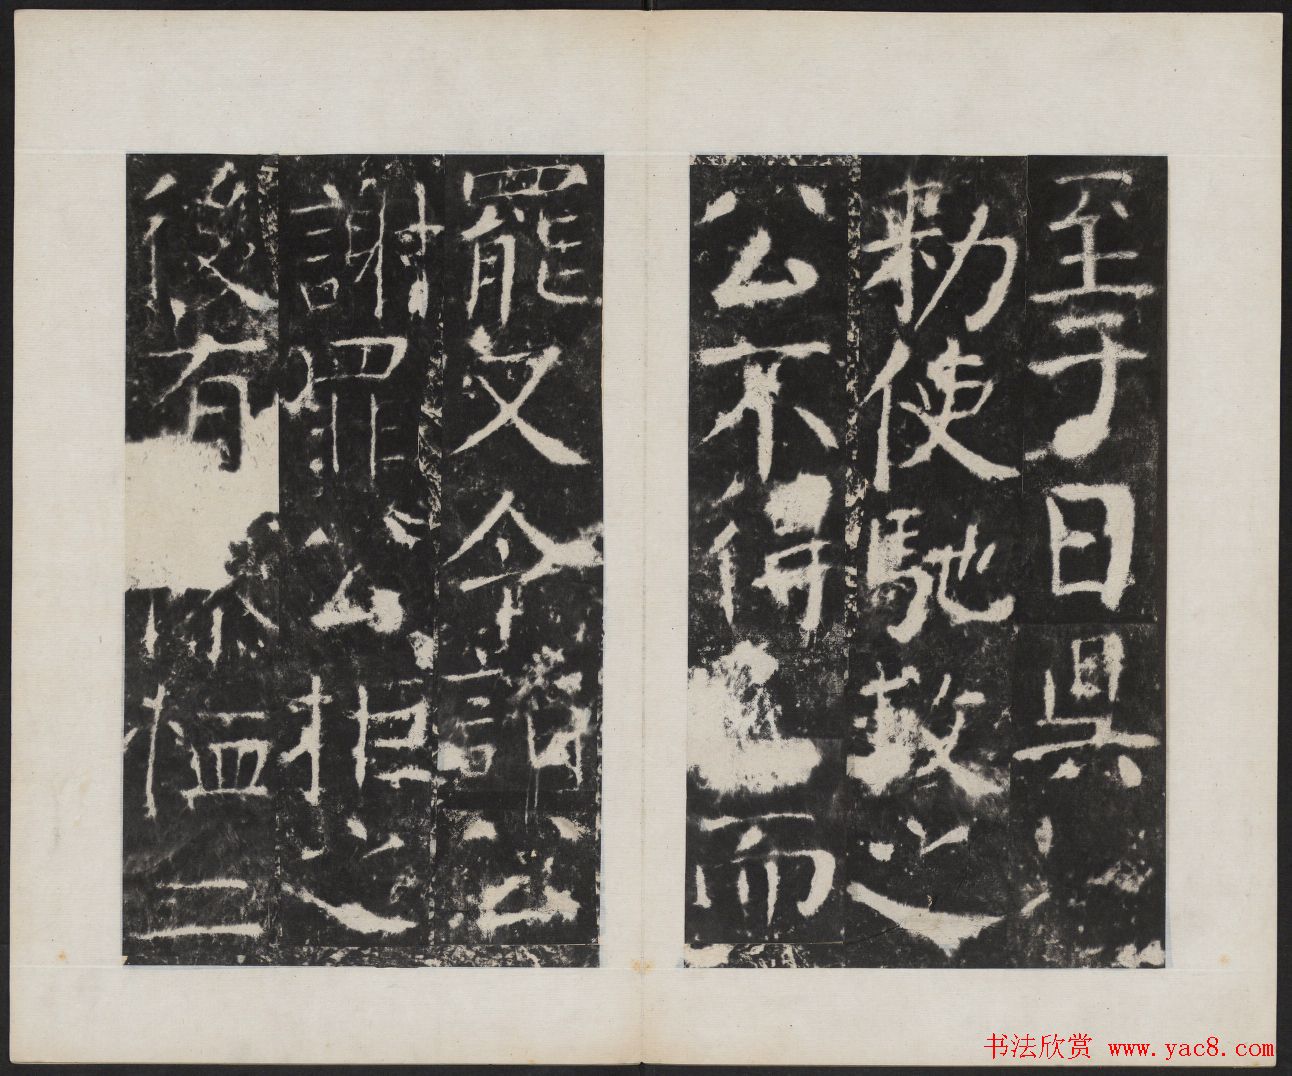 至于日具
勑使馳救之
公不得已而
罷又令詣公
謝罪公拒之
後有二
书法欣赏 www.yac8.com